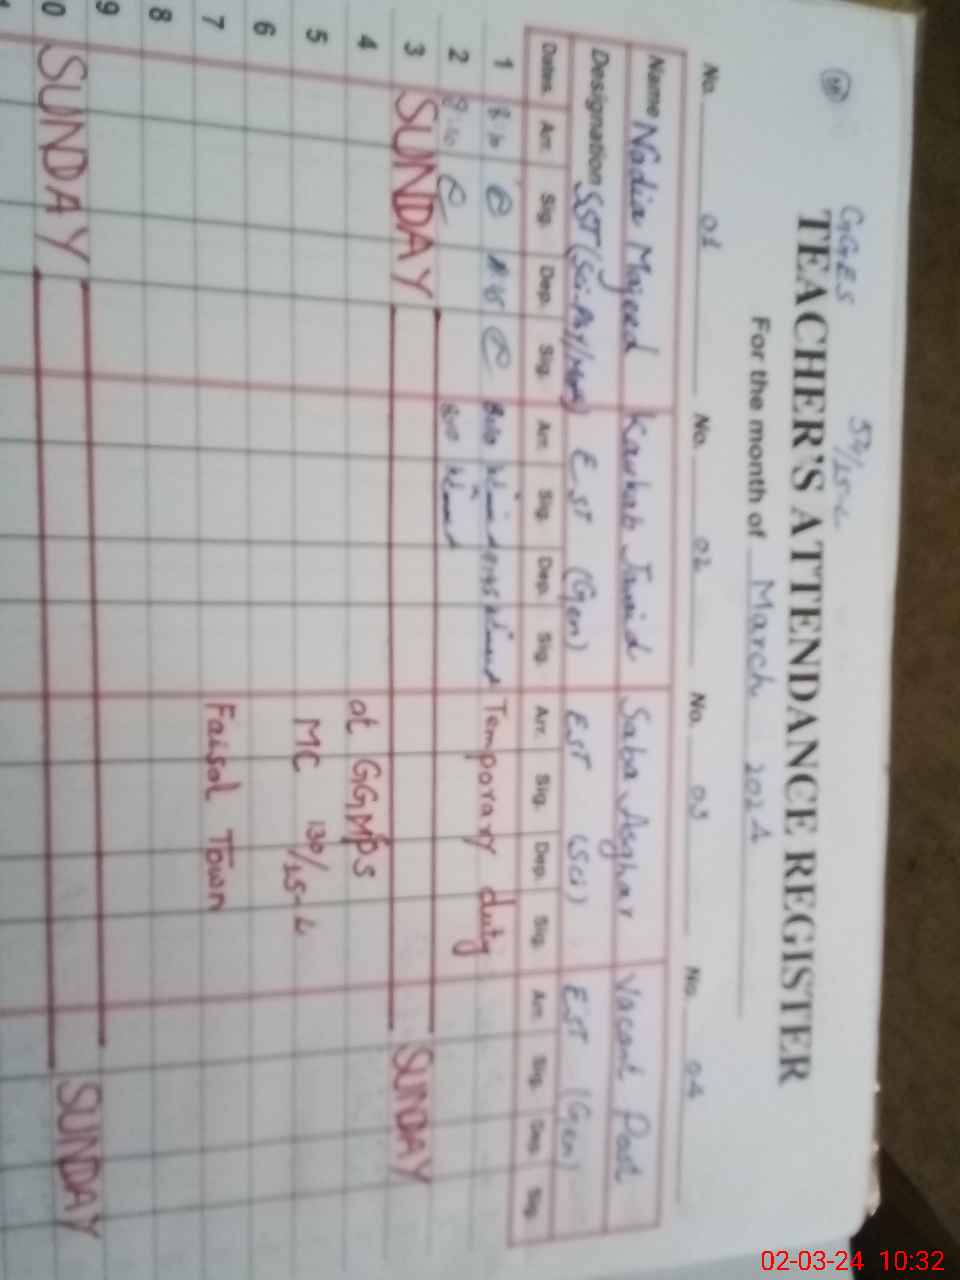 GGES 57/15-L
TEACHER'S ATTENDANCE REGISTER
For the month of March 2024
No. 01 No. 02 No. 03 No. 04
Name Nadia Majeed Kaukab Javid Saba Asghar Vacant Post
Designation SST (Sci. EST (Gen) EST (Sci) EST (Gen)
Dates Arr. Sig. Dep. Sig. Arr. Sig. Dep. Sig. Arr. Sig. Dep. Sig. Arr. Sig. Dep. Sig.
1 8:10 8:10 Temporary duty
2 8:10 8:10
3 SUNDAY SUNDAY
4 at GGMPS
5 MC 130/15-L
6
7 Faisal Town
8
9
0 SUNDAY SUNDAY
02-03-24 10:32